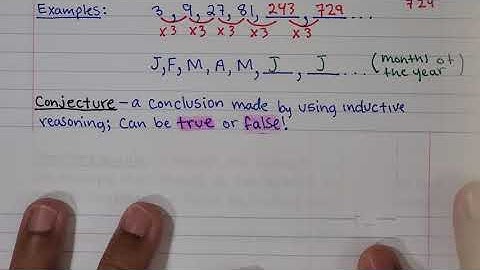 729
Examples: 3, 9, 27, 81, 243, 729 ...
x3 x3 x3 x3 x3
J, F, M, A, M, J, J ... (months of the year)
Conjecture – a conclusion made by using inductive
reasoning; can be true or false!